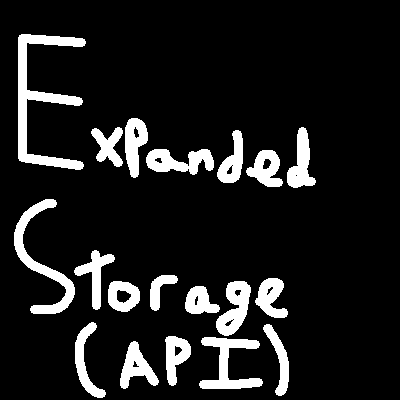 Expanded
Storage
(API)